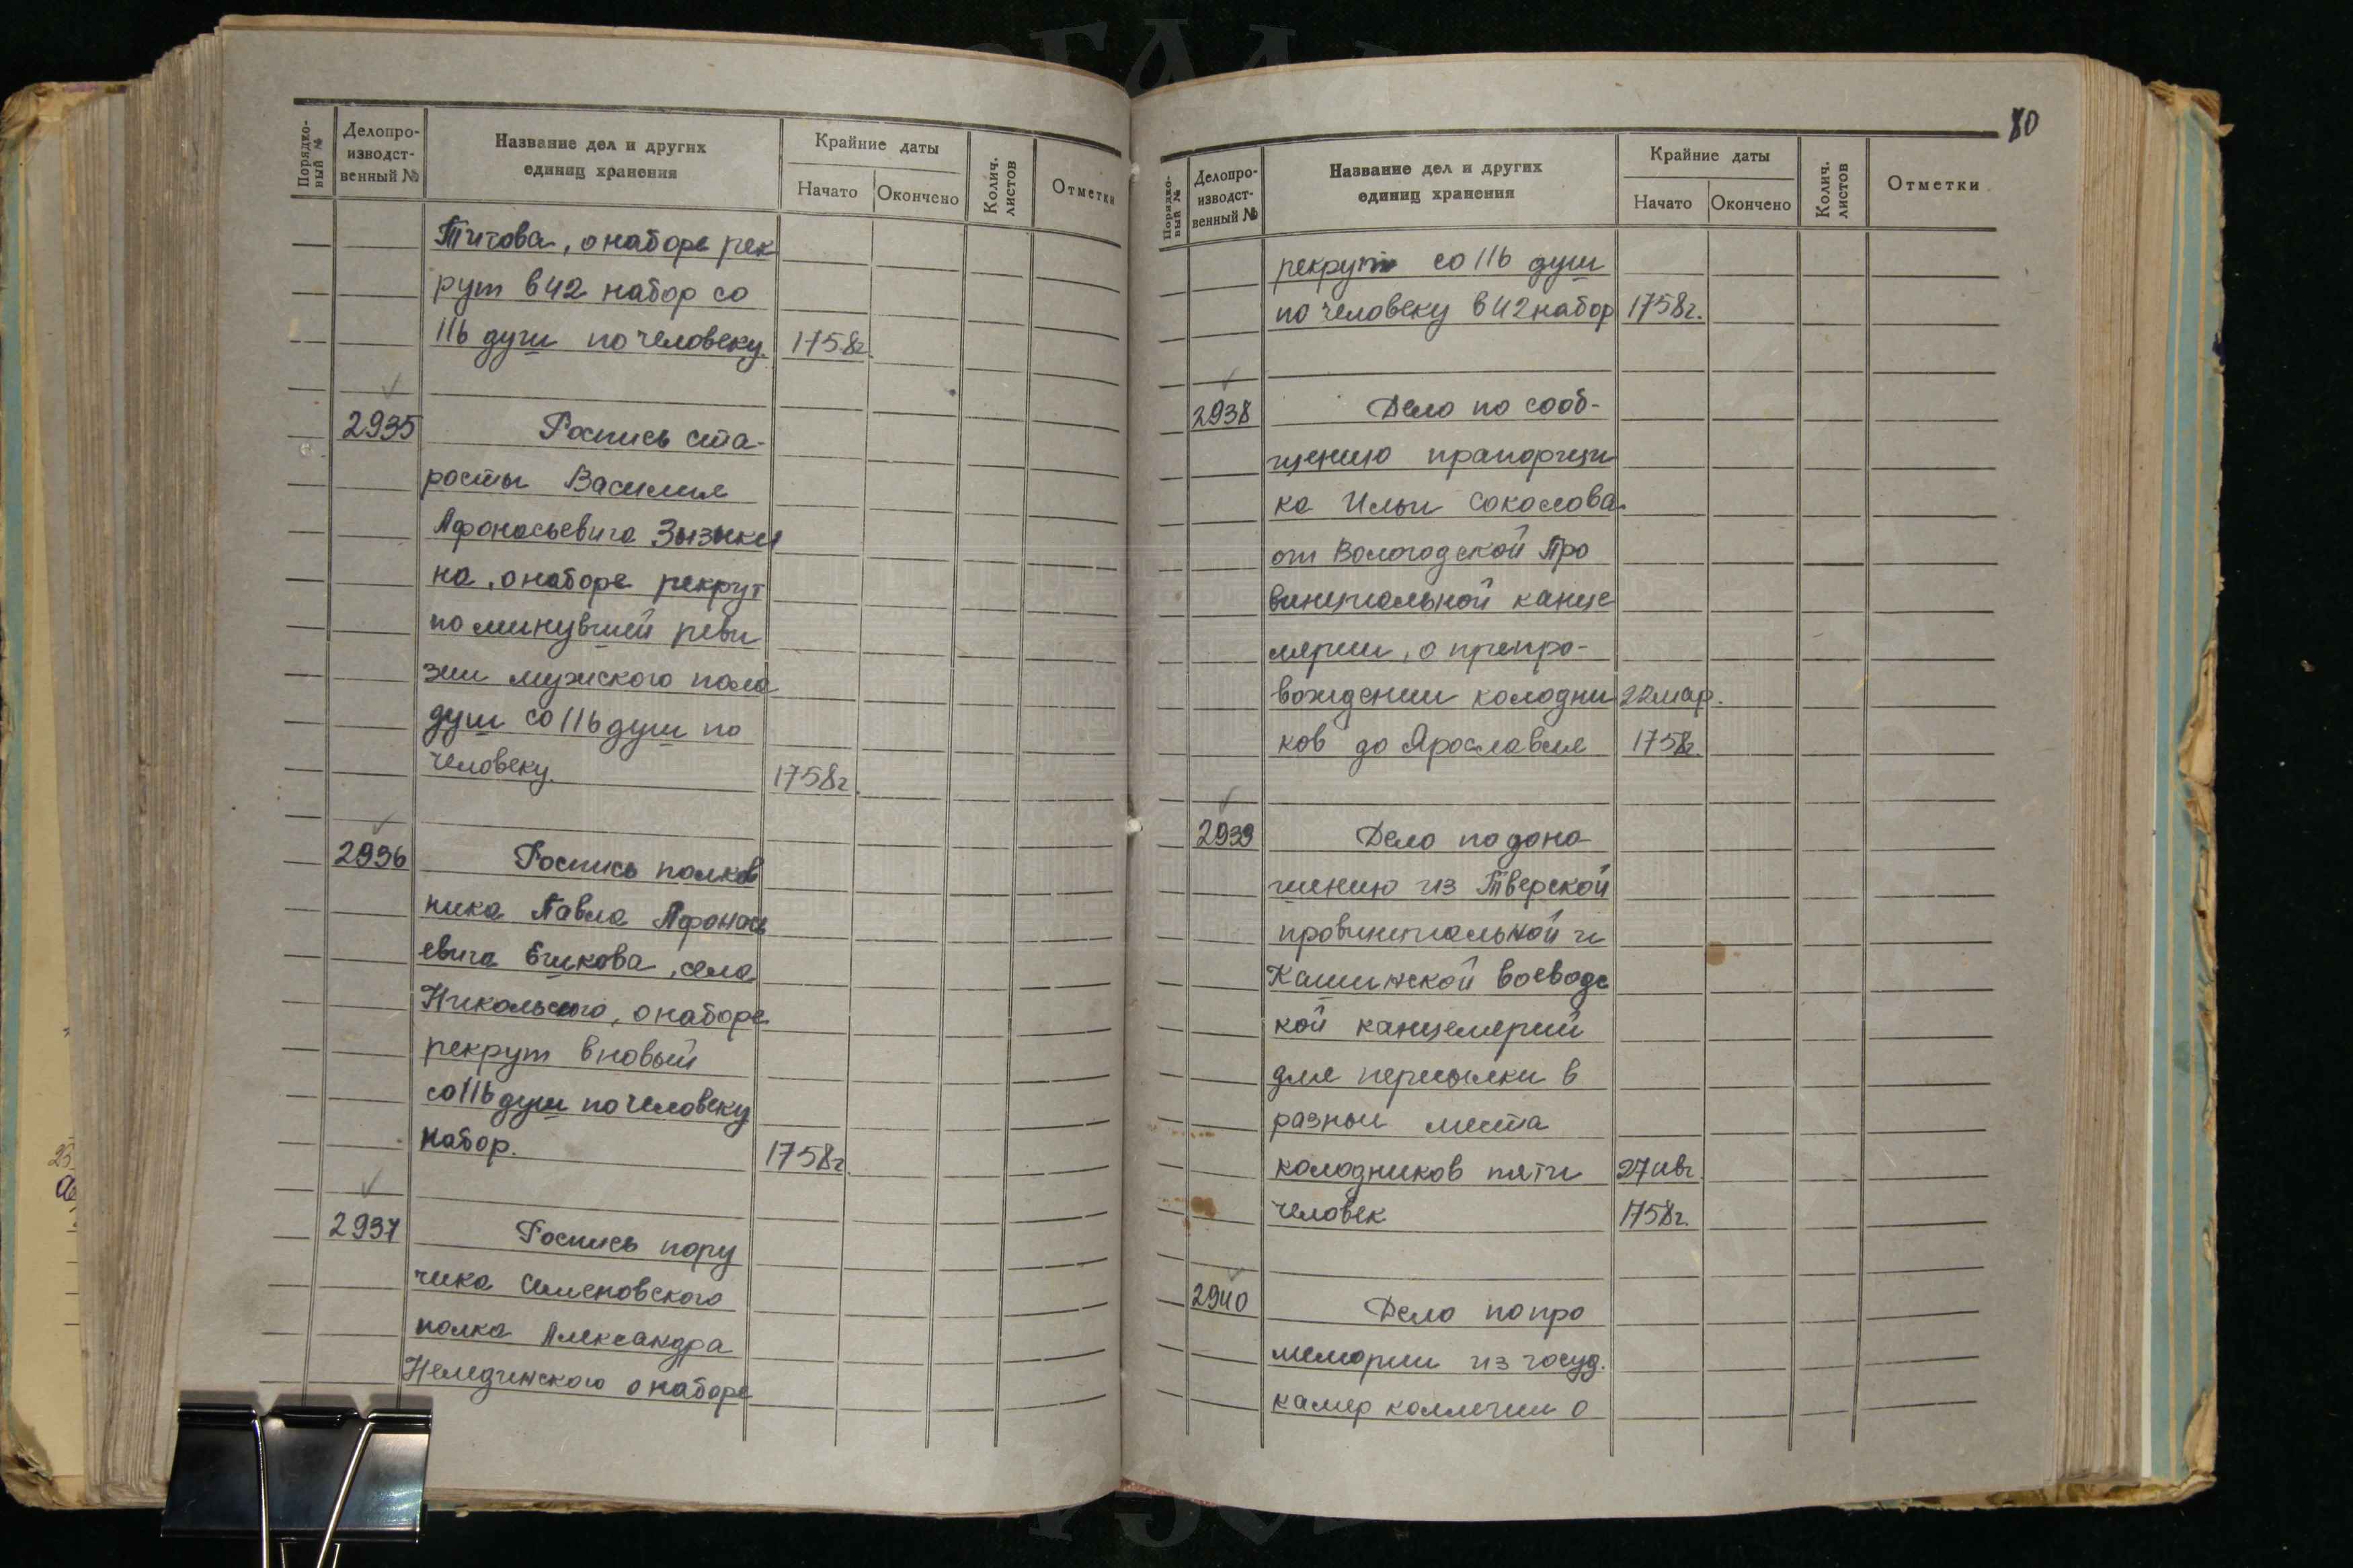 Порядко-
вый №
Делопро-
изводст-
венный №
Название дел и других
единиц хранения
Крайние даты
Начато
Окончено
Колич.
листов
Отметки
Титова, о наборе рек
рут в 42 набор со
116 душ по человеку. 1758г.
2935 Роспись ста-
росты Василия
Афонасьевича Зызыки
на, о наборе рекрут
по минувшей реви
зии мужского пола
душ со 116 душ по
человеку. 1758г.
2936 Роспись полков
ника Павла Афонась
евича Ешкова, села
Никольского, о наборе
рекрут в новый
со 116 душ по человеку
набор. 1758г.
2937 Роспись пору
чика Семеновского
полка Александра
Нелединского о наборе
80
Порядко-
вый №
Делопро-
изводст-
венный №
Название дел и других
единиц хранения
Крайние даты
Начато
Окончено
Колич.
листов
Отметки
рекрут со 116 душ
по человеку в 42 набор 1758г.
2938 Дело по сооб-
щению прапорщи
ка Ильи Соколова
от Вологодской Про
винциальной канце
лярии, о препро-
вождении колодни 22 мар.
ков до Ярославля 1758г.
2939 Дело по доно
шению из Тверской
провинциальной и
Кашинской воеводс
кой канцелярий
для пересылки в
разныи места
колодников пяти 27 авг.
человек 1758г.
2940 Дело по про
мемории из госуд.
камер коллегии о